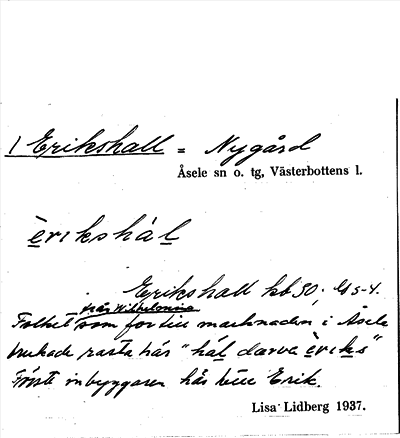 1 Erikshall = Nygård
Åsele sn o. tg, Västerbottens l.
èrikshál
Erikshall hb 50,
från Wilhelmina
Folket som for till marknaden i Åsele
brukade rasta här "hál darva èriks"
Första inbyggaren här hette Erik.
Lisa Lidberg 1937.